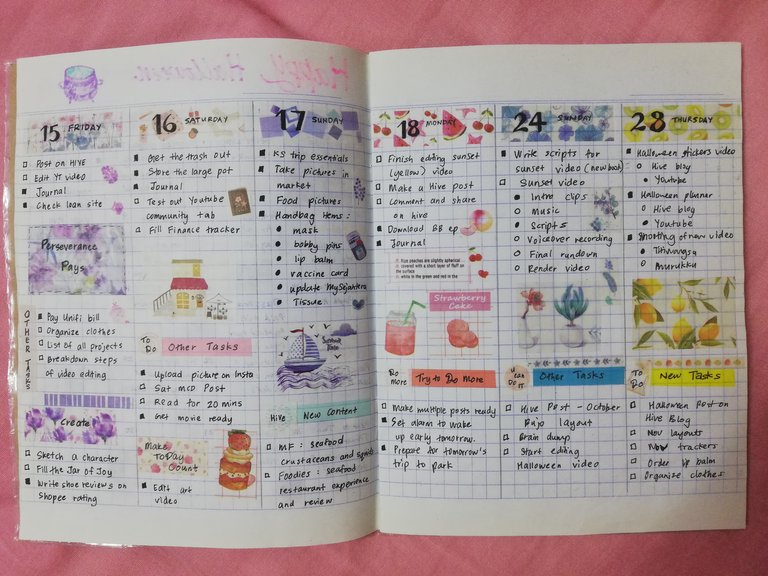 Happy Halloween
15 FRIDAY
Post on HIVE
Edit YT video
Journal
Check loan site
Perseverance
Pays
OTHER TASKS
Pay Unifi bill
Organize clothes
List of all projects
Breakdown steps
of video editing
Create
Sketch a character
Fill the Jar of Joy
Write shoe reviews on
Shopee rating
16 SATURDAY
Get the trash out
Store the large pot
Journal
Test out Youtube
community tab
Fill Finance tracker
To
Do
Other Tasks
Upload picture on Insta
Sat MCD Post
Read for 20 mins
Get movie ready
Make
Today
Count
Edit art
video
17 SUNDAY
KS trip essentials
Take pictures in
market
Food pictures
Handbag items:
mask
bobby pins
lip balm
vaccine card
update MySejahtera
Tissue
Hive
New Content
MF: seafood
Crustaceans and Squids
Foodies: seafood
restaurant experience
and review
18 MONDAY
Finish editing sunset
(yellow) video
Make a Hive post
Comment and share
on hive
Download BB ep
Journal
covered with a short layer of fluff on
the surface
white in the green and red in the
Strawberry
Cake
Do
More
Try to Do More
Make multiple posts ready
Set alarm to wake
up early tomorrow.
Prepare for tomorrow's
trip to park
24 SUNDAY
Write scripts for
sunset video (new book)
Sunset video
Intro clips
Music
Scripts
Voiceover recording
Final rundown
Render video
U can
Do IT
Other Tasks
Hive Post - October
Bujo layout
Brain dump
Start editing
Halloween video
28 THURSDAY
Halloween stickers video
Hive blog
Youtube
Halloween planner
Hive blog
Youtube
Shooting of new video
Murukku
To
Do
New Tasks
Halloween Post on
Hive Blog
Nov layouts
Nov trackers
Order lip balm
Organize clothes